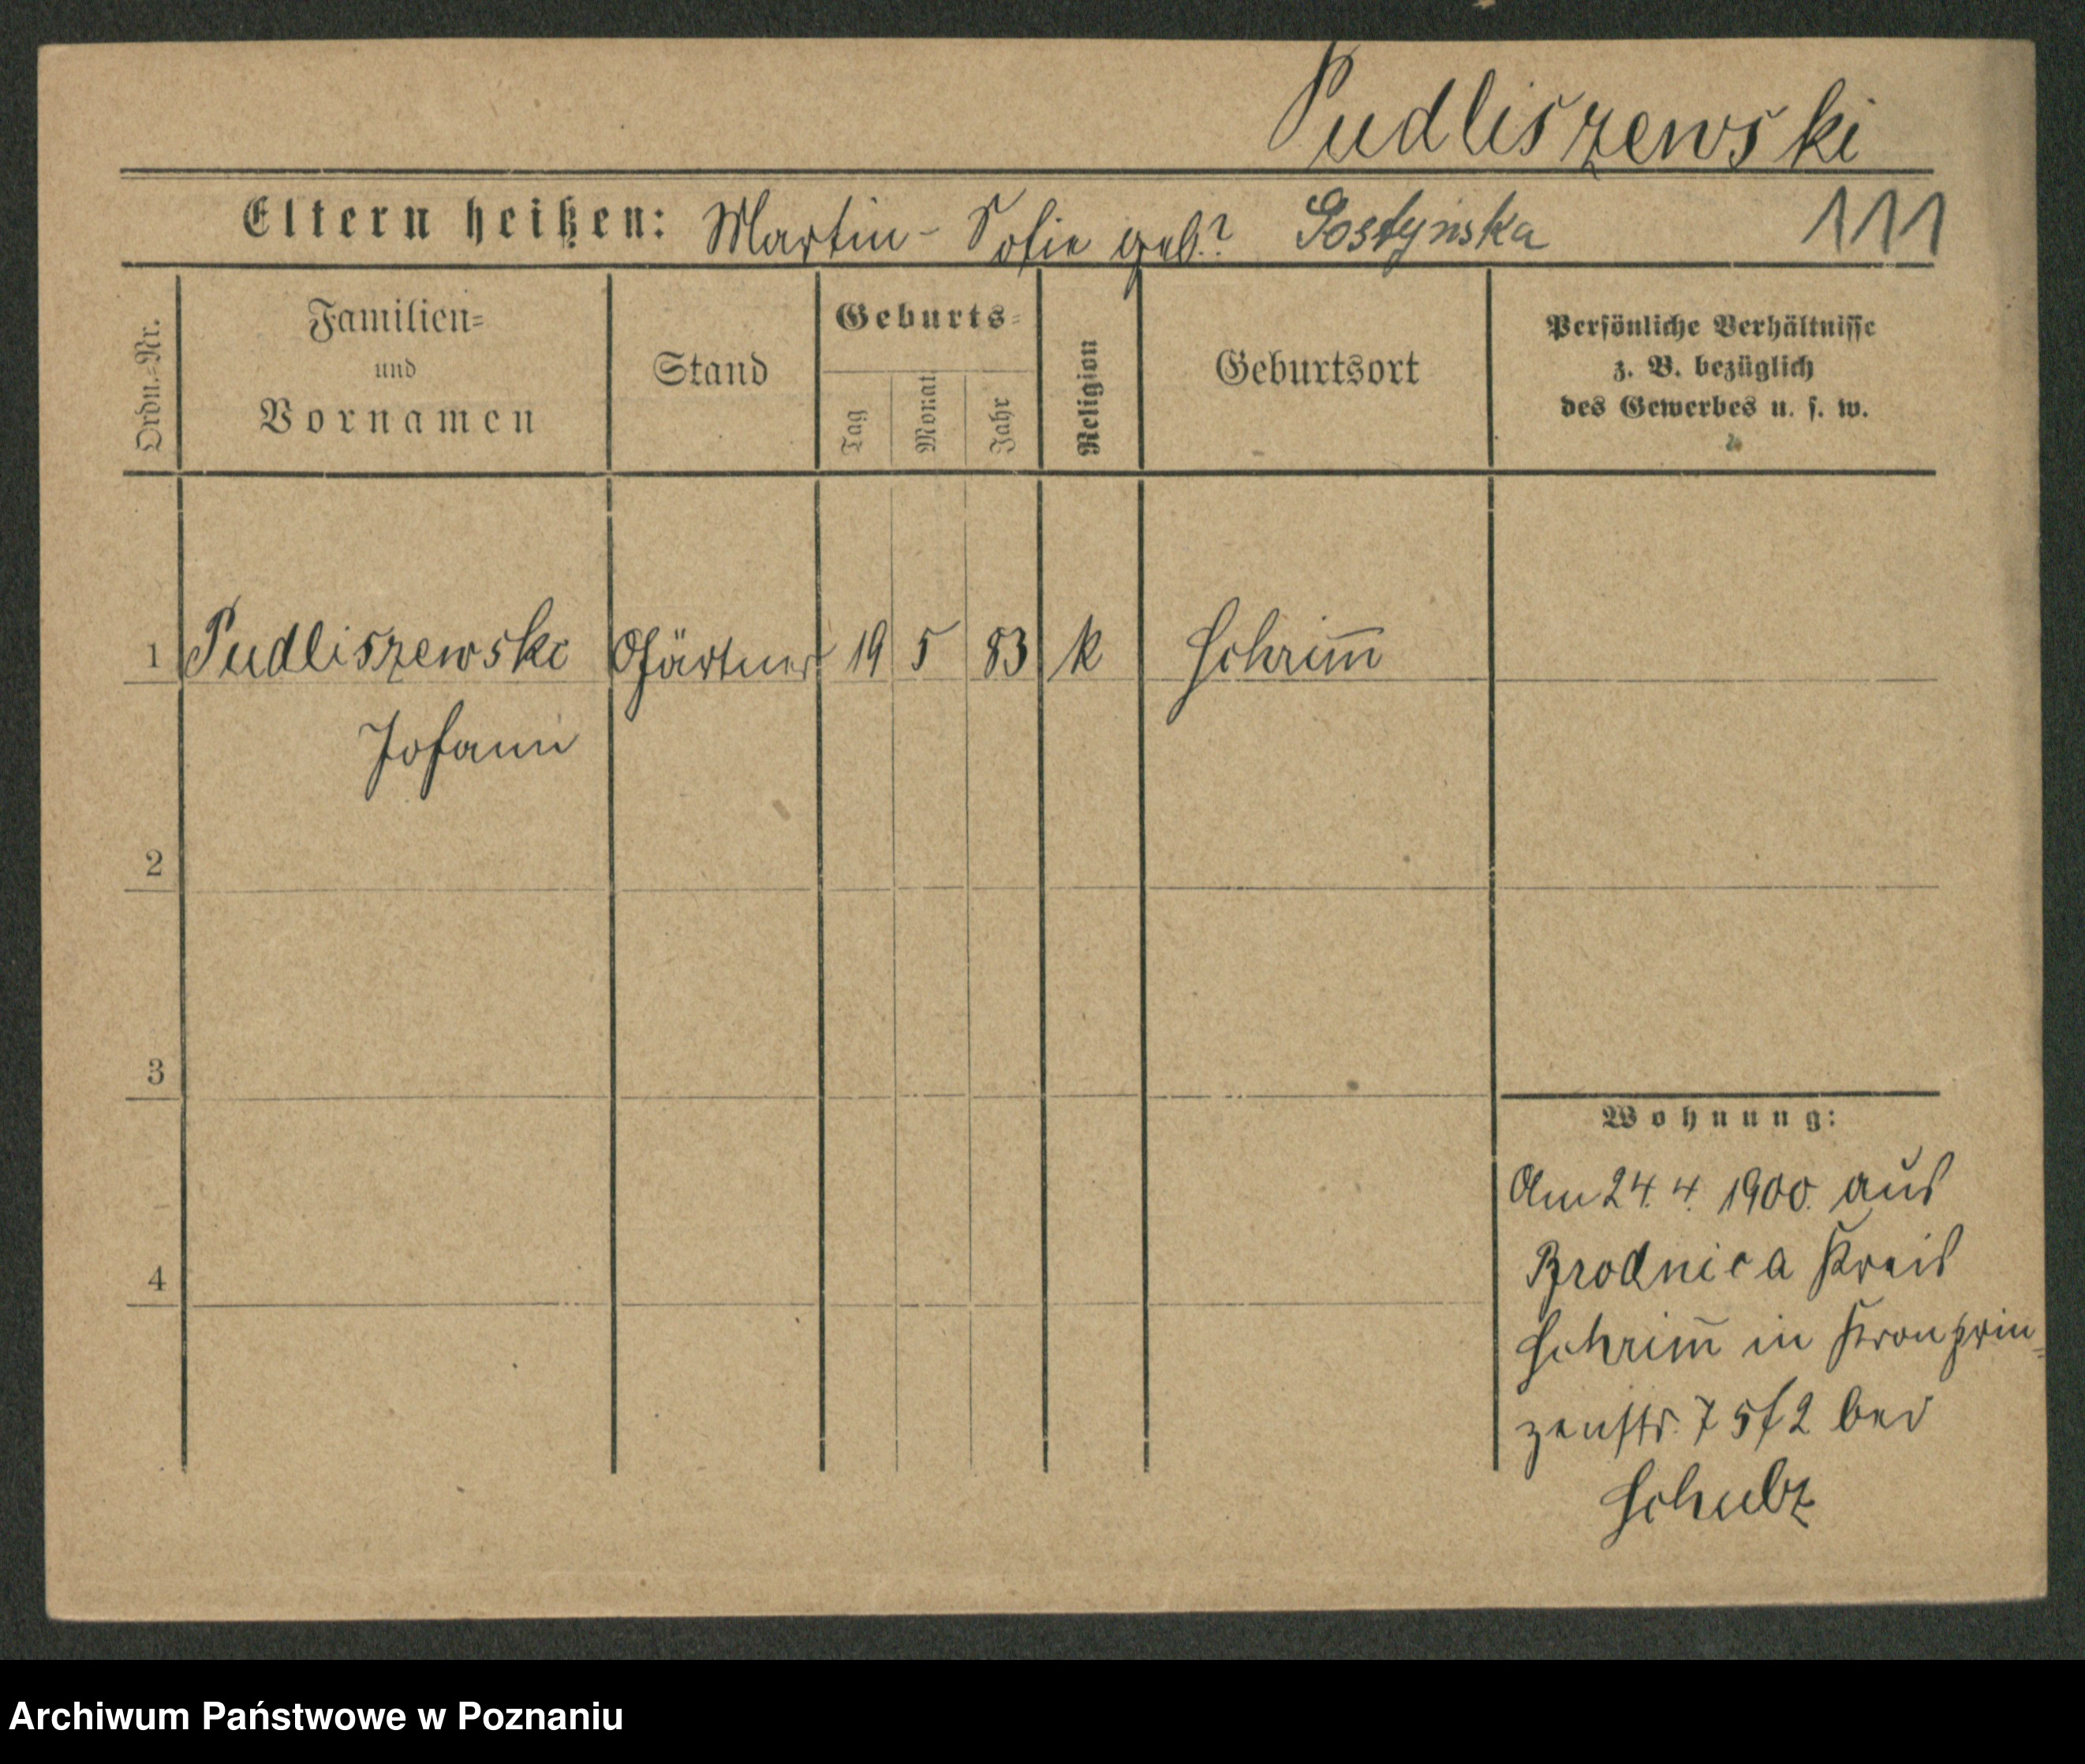 Pudliszewski
Eltern heißen: Martin - Sofie geb.? Gostynska 111
Ordn.-Nr.
Familien=
und
Vornamen
Stand
Geburts=
Tag
Monat
Jahr
Religion
Geburtsort
Persönliche Verhältnisse
z. B. bezüglich
des Gewerbes u. s. w.
1 Pudliszewski Gärtner 19 5 83 k Schrim̅
Johann
2
3
4
Wohnung:
Am 24. 4. 1900. aus
Brodnica Kreis
Schrim̅ in Kronprin=
zenstr. 75 f 2 bei
Schulz
Archiwum Państwowe w Poznaniu